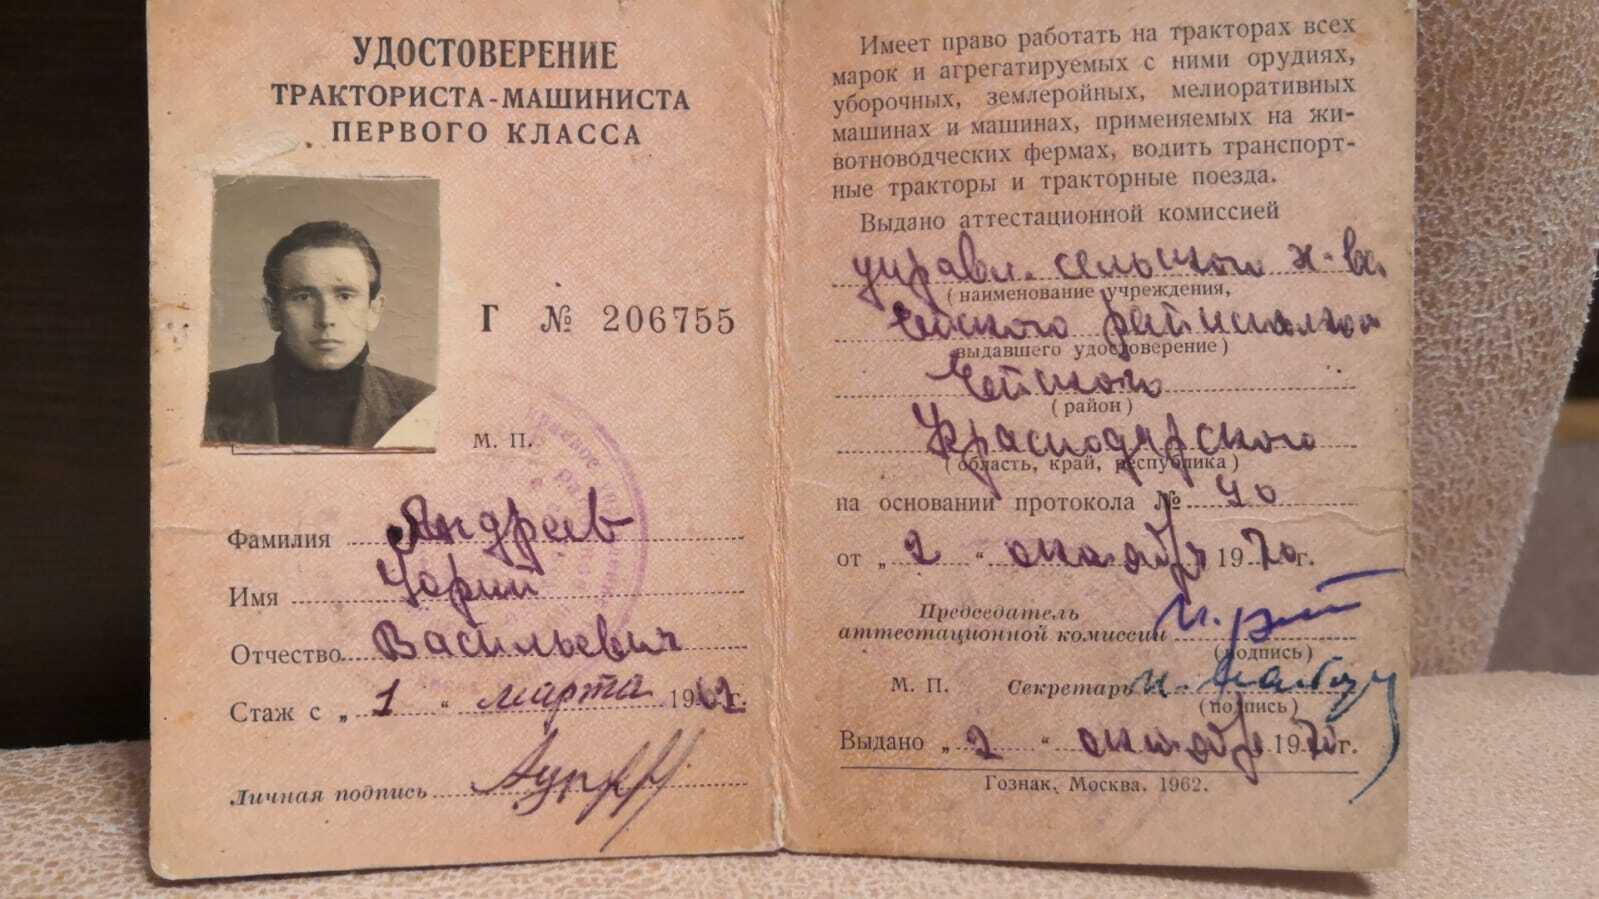 УДОСТОВЕРЕНИЕ
ТРАКТОРИСТА-МАШИНИСТА
ПЕРВОГО КЛАССА
Г № 206755
М. П.
Фамилия Андреев
Имя Юрий
Отчество Васильевич
Стаж с „ 1 “ марта 1962г.
Личная подпись
Имеет право работать на тракторах всех
марок и агрегатируемых с ними орудиях,
уборочных, землеройных, мелиоративных
машинах и машинах, применяемых на жи-
вотноводческих фермах, водить транспорт-
ные тракторы и тракторные поезда.
Выдано аттестационной комиссией
управл. сельского х-ва
(наименование учреждения,
Ейского райисполком
выдавшего удостоверение)
Ейского
(район)
Краснодарского
(область, край, республика)
на основании протокола № 40
от „ 2 “ октября 1970г.
Председатель
аттестационной комиссии
(подпись)
М. П. Секретарь
(подпись)
Выдано „ 2 “ октября 1970г.
Гознак. Москва. 1962.